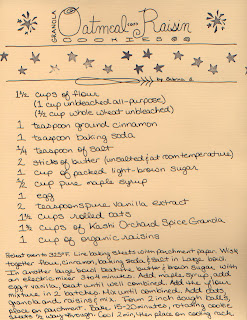 GRANOLA Oatmeal Raisin
COOKIES
by
1½ cups of flour
(1 cup unbleached all-purpose)
(½ cup whole wheat unbleached)
1 teaspoon ground cinnamon
1 teaspoon baking soda
¼ teaspoon of salt
2 sticks of butter (unsalted/at room temperature)
1 cup of packed light-brown sugar
½ cup pure maple syrup
1 egg
2 teaspoons pure vanilla extract
1¾ cups rolled oats
1½ cups of Kashi Orchard Spice Granola
1 cup of organic raisins
Preheat oven to 325°F. Line baking sheets with parchment paper. Wisk
together flour, cinnamon, baking soda & salt in large bowl.
In another large bowl beat the butter & brown sugar, with
an electric mixer 3 to 4 minutes. Add maple syrup, add
egg & vanilla, beat until well combined. Add the flour
mixture in 2 batches. Mix until combined. Add oats,
granola and raisins & mix. Form 2 inch dough balls,
place on parchment. Bake 15-20 minutes, rotating cookie
sheets ½ way through. Cool 2 min, then place on cooling rack.